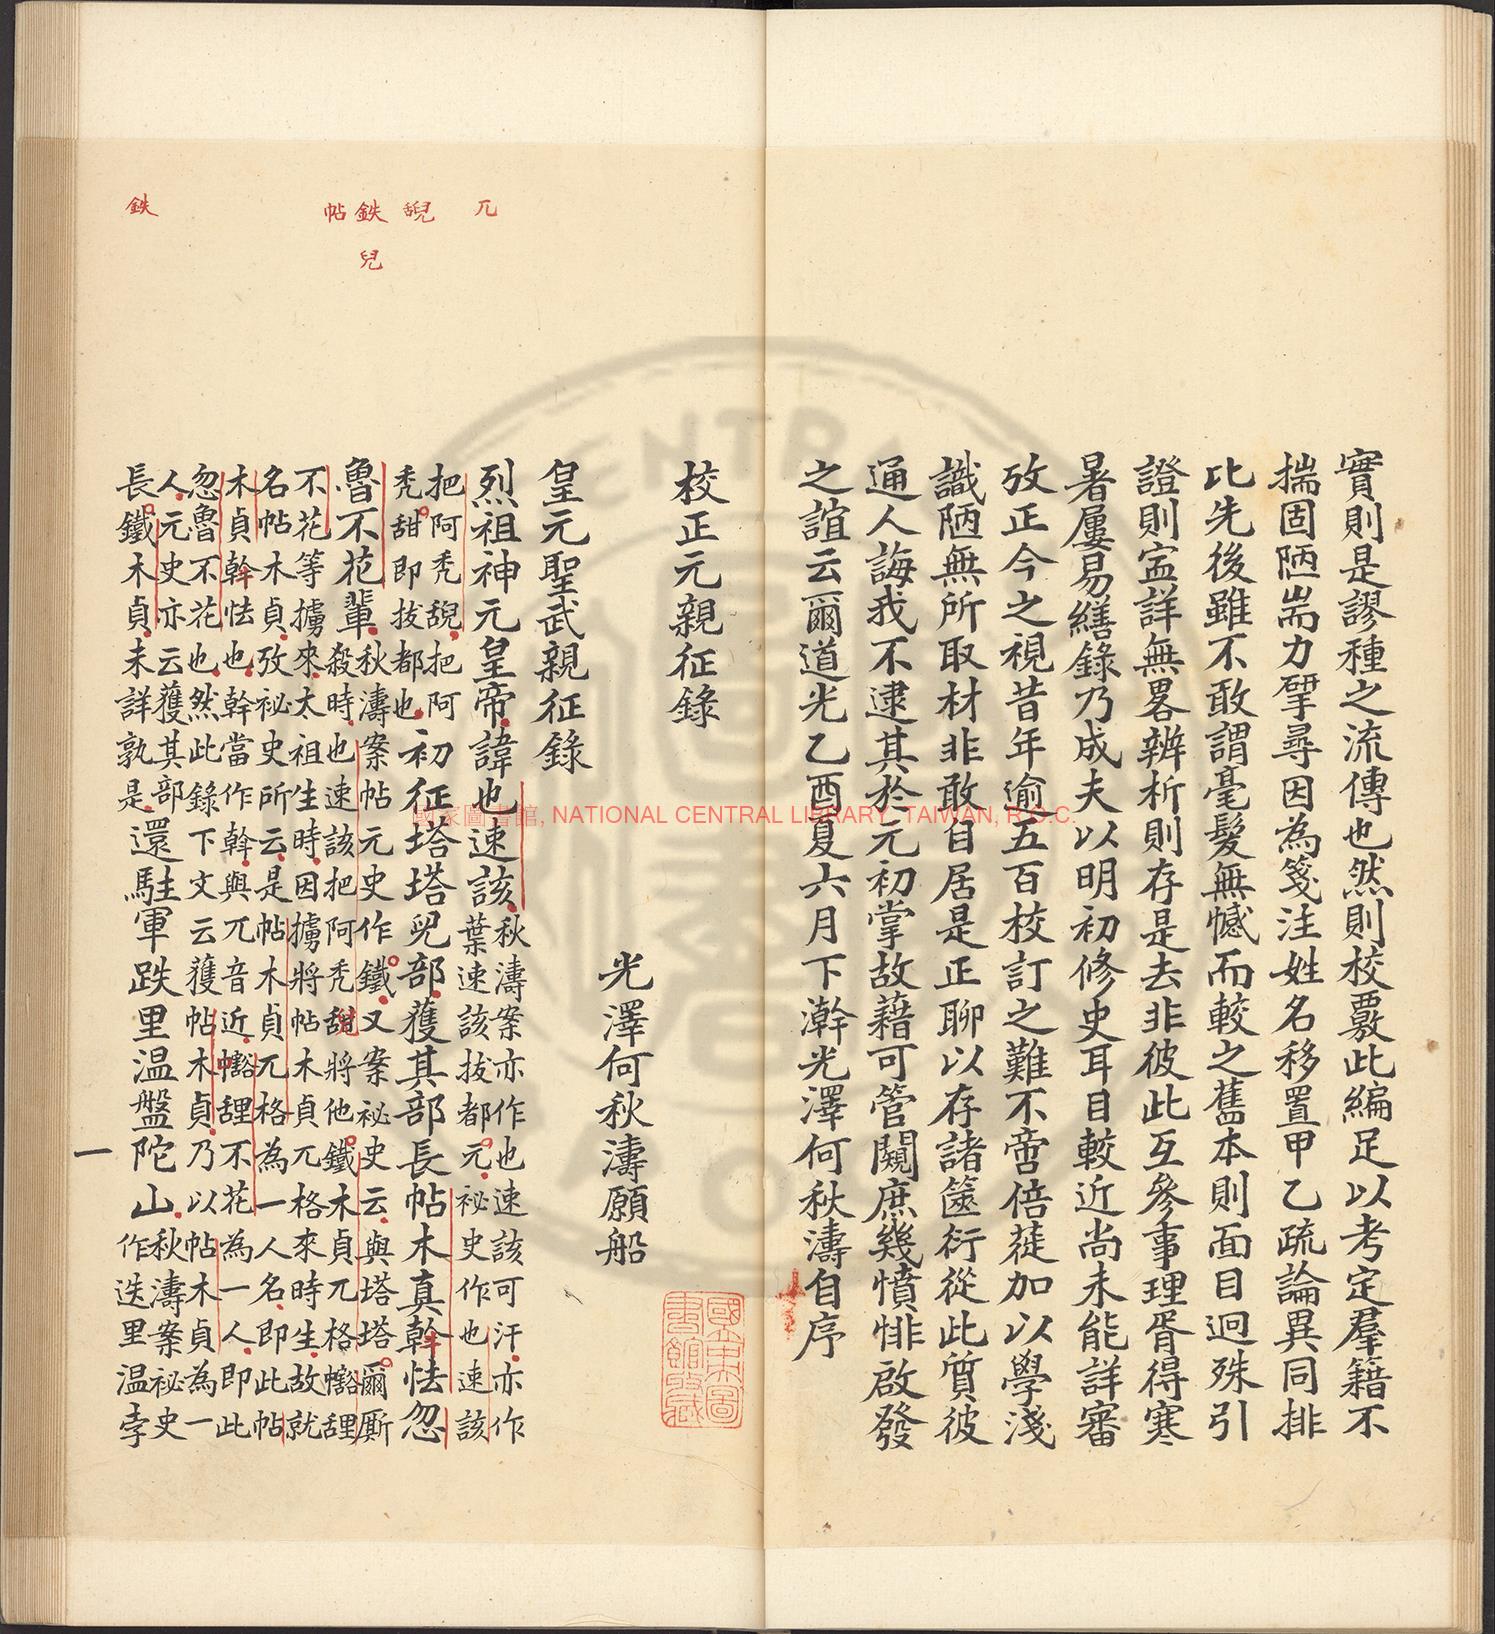 實則是謬種之流傳也然則校覈此編足以考定羣籍不
揣固陋耑力擘尋因為箋注姓名移置甲乙疏論異同排
比先後雖不敢謂毫髮無憾而較之舊本則面目迥殊引
證則寍詳無畧辨析則存是去非彼此互參事理胥得寒
暑屢易繕錄乃成夫以明初修史耳目較近尚未能詳審
攷正今之視昔年逾五百校訂之難不啻倍蓰加以學淺
識陋無所取材非敢自居是正聊以存諸篋衍從此質彼
通人誨我不逮其於元初掌故藉可管闚庶幾憤悱啟發
之誼云爾道光乙酉夏六月下澣光澤何秋濤自序
校正元親征錄
光澤何秋濤願船
皇元聖武親征錄
烈祖神元皇帝諱也速該秋濤案亦作也速該可汗亦作
葉速該拔都元祕史作也速該
把阿禿䚷把阿
禿甜即拔都也初征塔塔兒部獲其部長帖木真斡怯忽
魯不花輩秋濤案帖元史作鐵又案祕史云與塔塔爾廝
殺時也速該把阿禿甜將他鐵木貞兀格豁䚷
不花等擄來太祖生時因擄將帖木貞兀格來時生故就
名帖木貞攷祕史所云是帖木貞兀格為一人名即此帖
木貞斡怯也斡當作斡與兀音近豁䚷不花為一人即此
忽魯不花也然此錄下文云獲帖木貞乃以帖木貞為一
人元史亦云獲其部
長鐵木貞未詳孰是還駐軍跌里溫盤陀山秋濤案祕史
作迭里溫孛
一
兀
䚷
鉄
兒
帖
鉄
國立中央圖書館藏
國家圖書館, NATIONAL CENTRAL LIBRARY, TAIWAN, R.O.C.